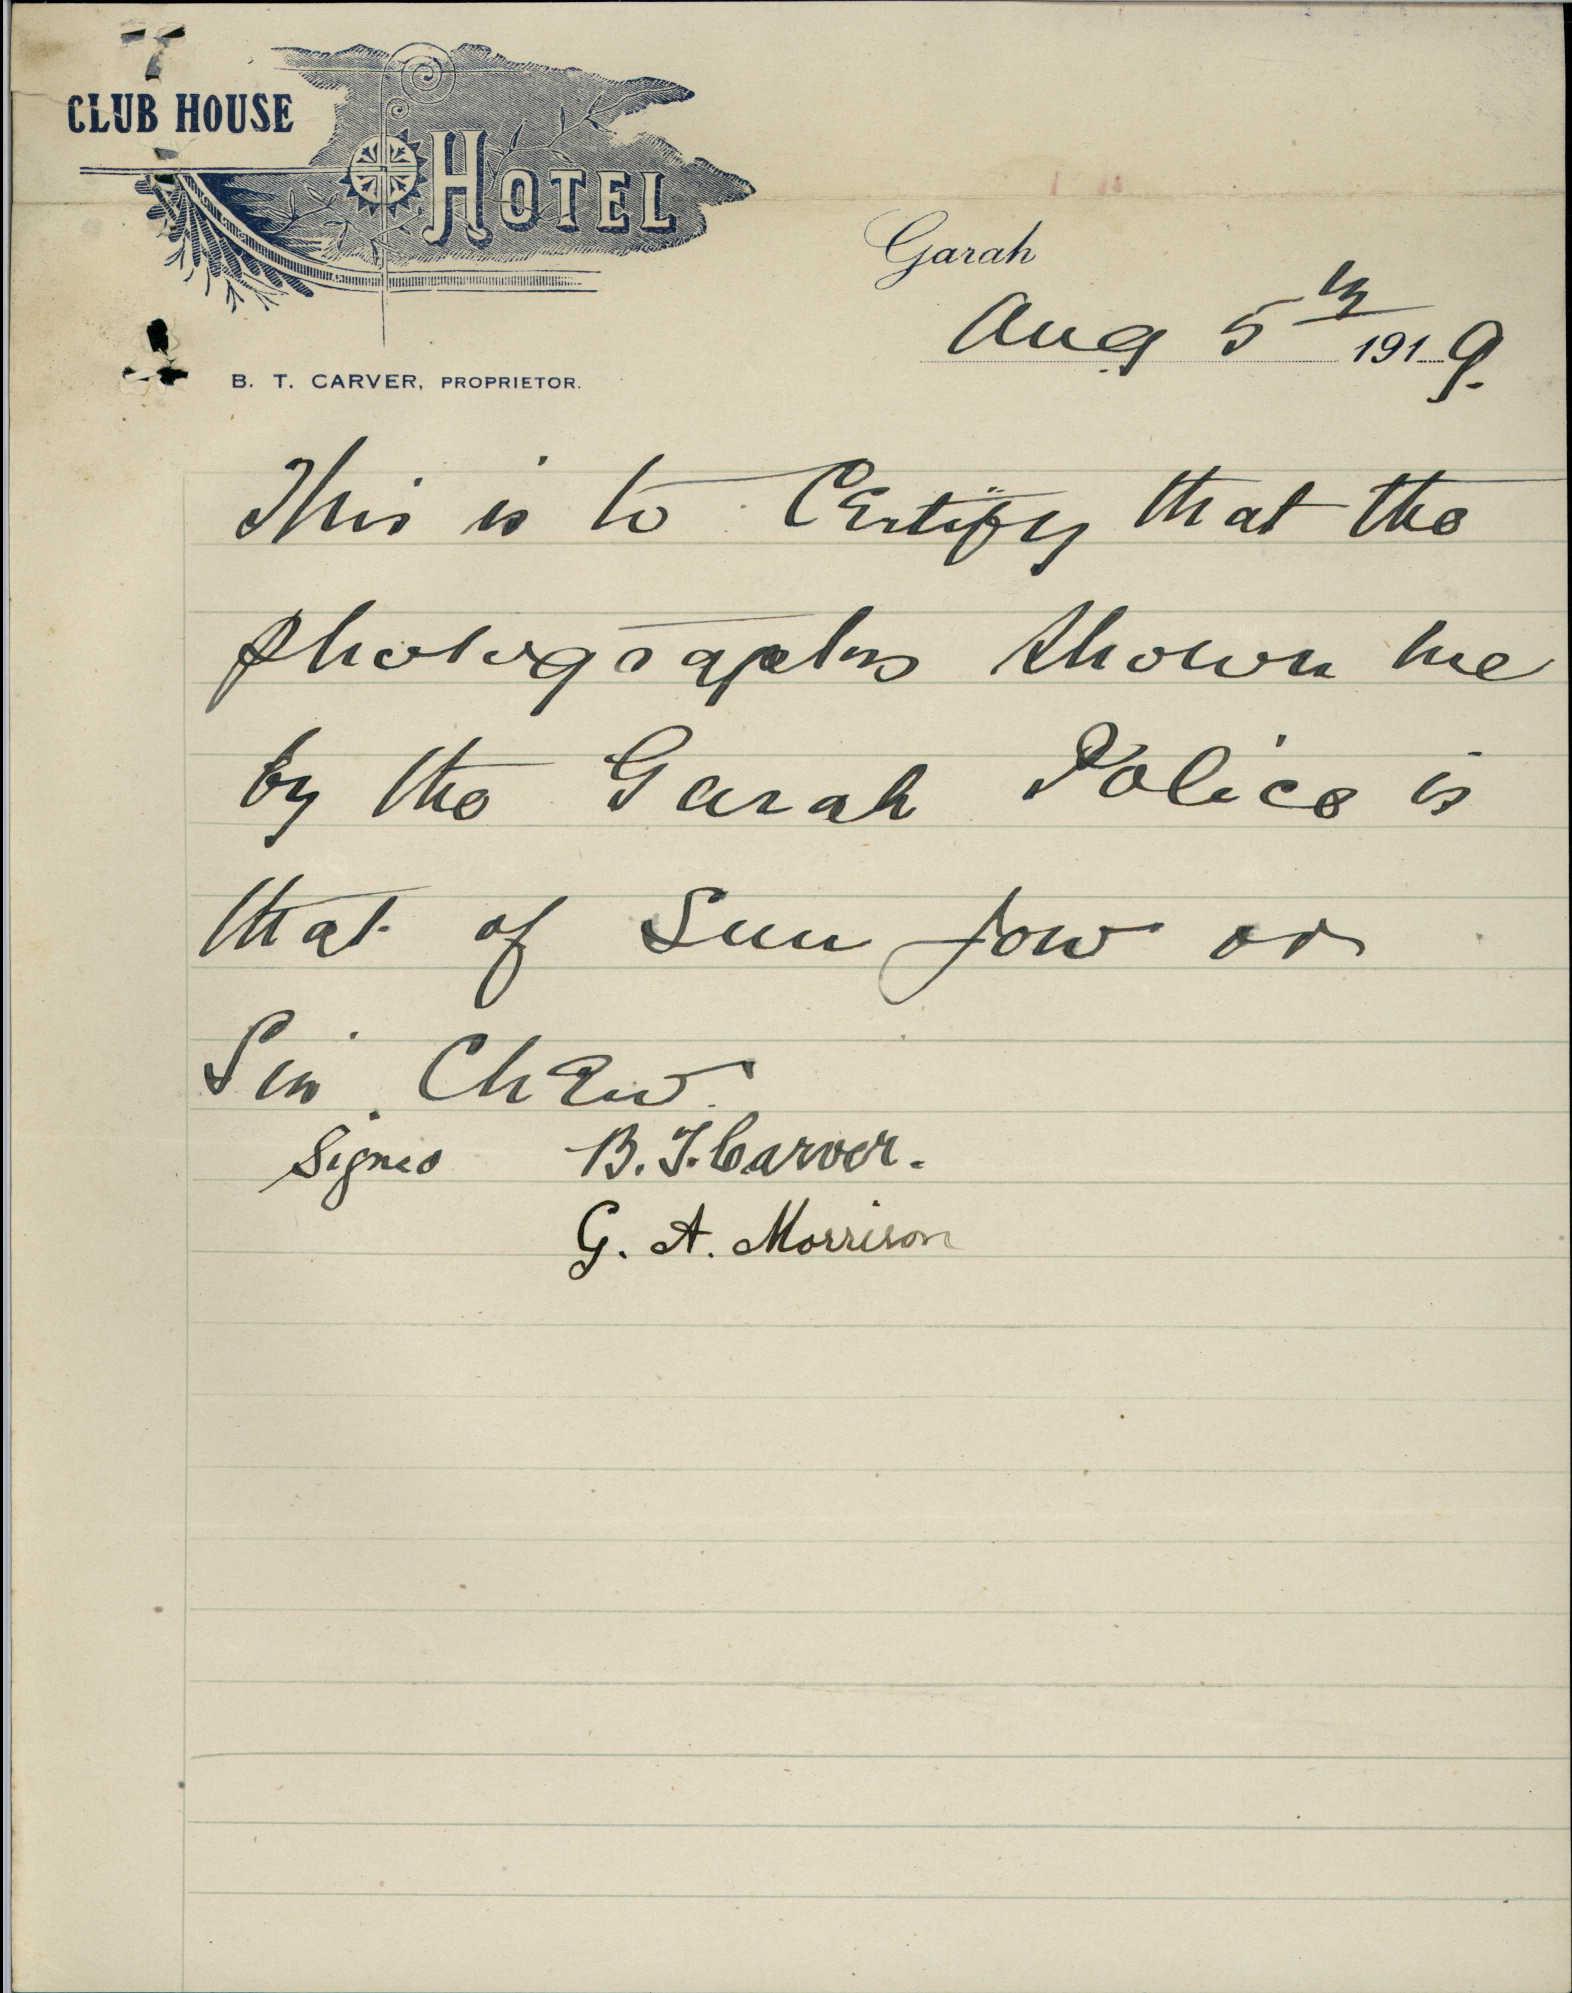 CLUB HOUSE
HOTEL
Garah
Aug 5th 1919.
B. T. CARVER, PROPRIETOR.
This is to Certify that the
photographs shown me
by the Garah Police is
that of Sun Jow or
Sin Chew.
Signed B. T. Carver.
G. A. Morrison